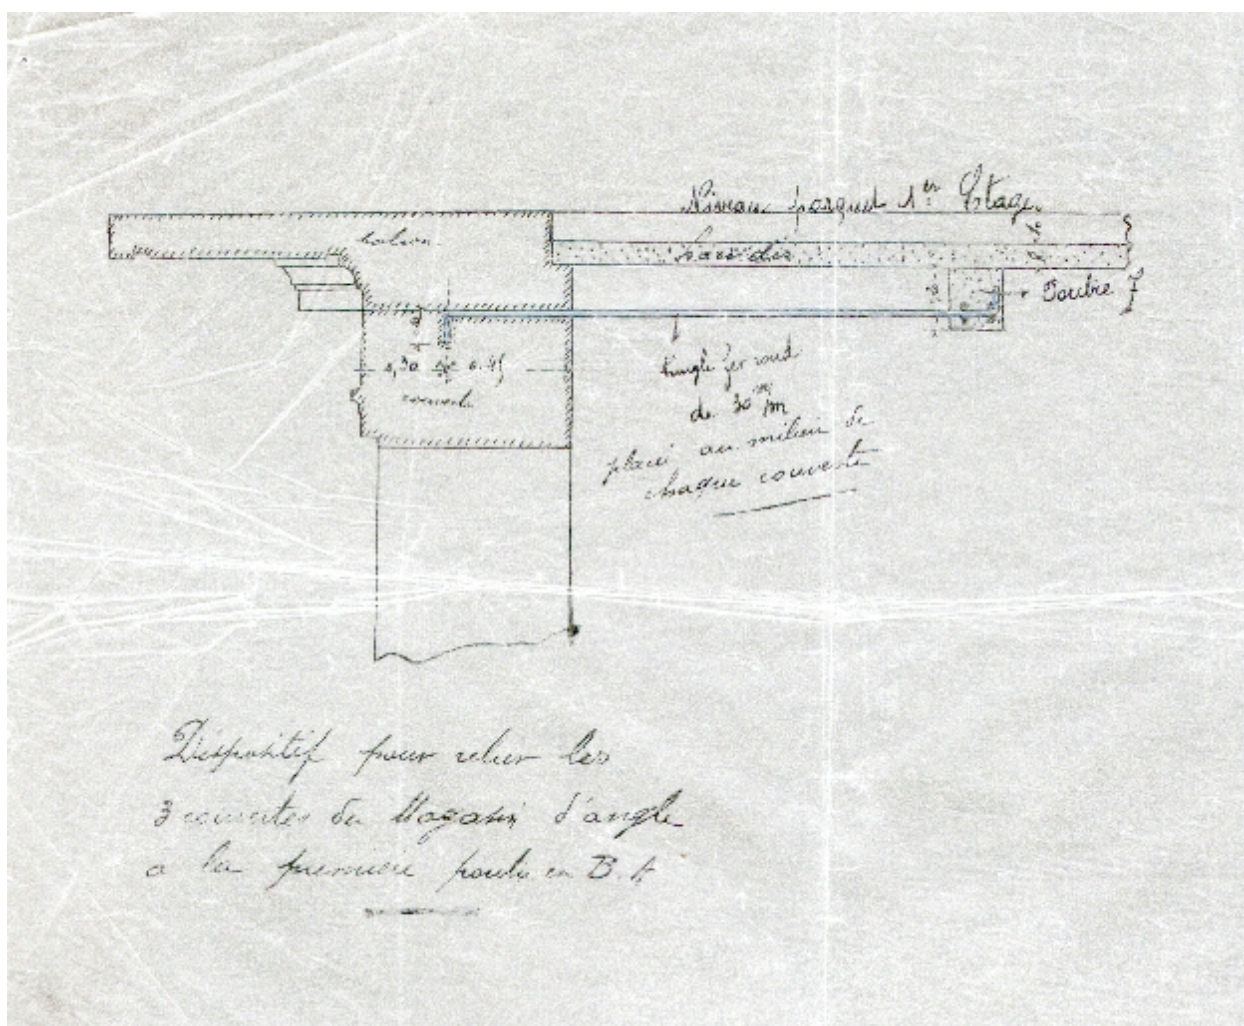 Niveau parquet 1er Etage
balcon
hourdis
Poutre J
0,30
0.45
couverte
tringle fer rond
de 30 m/m
placé au milieu de
chaque couverte
Dispositif pour relier les
3 couvertes du Magasin d'angle
a la première poutre en B.A